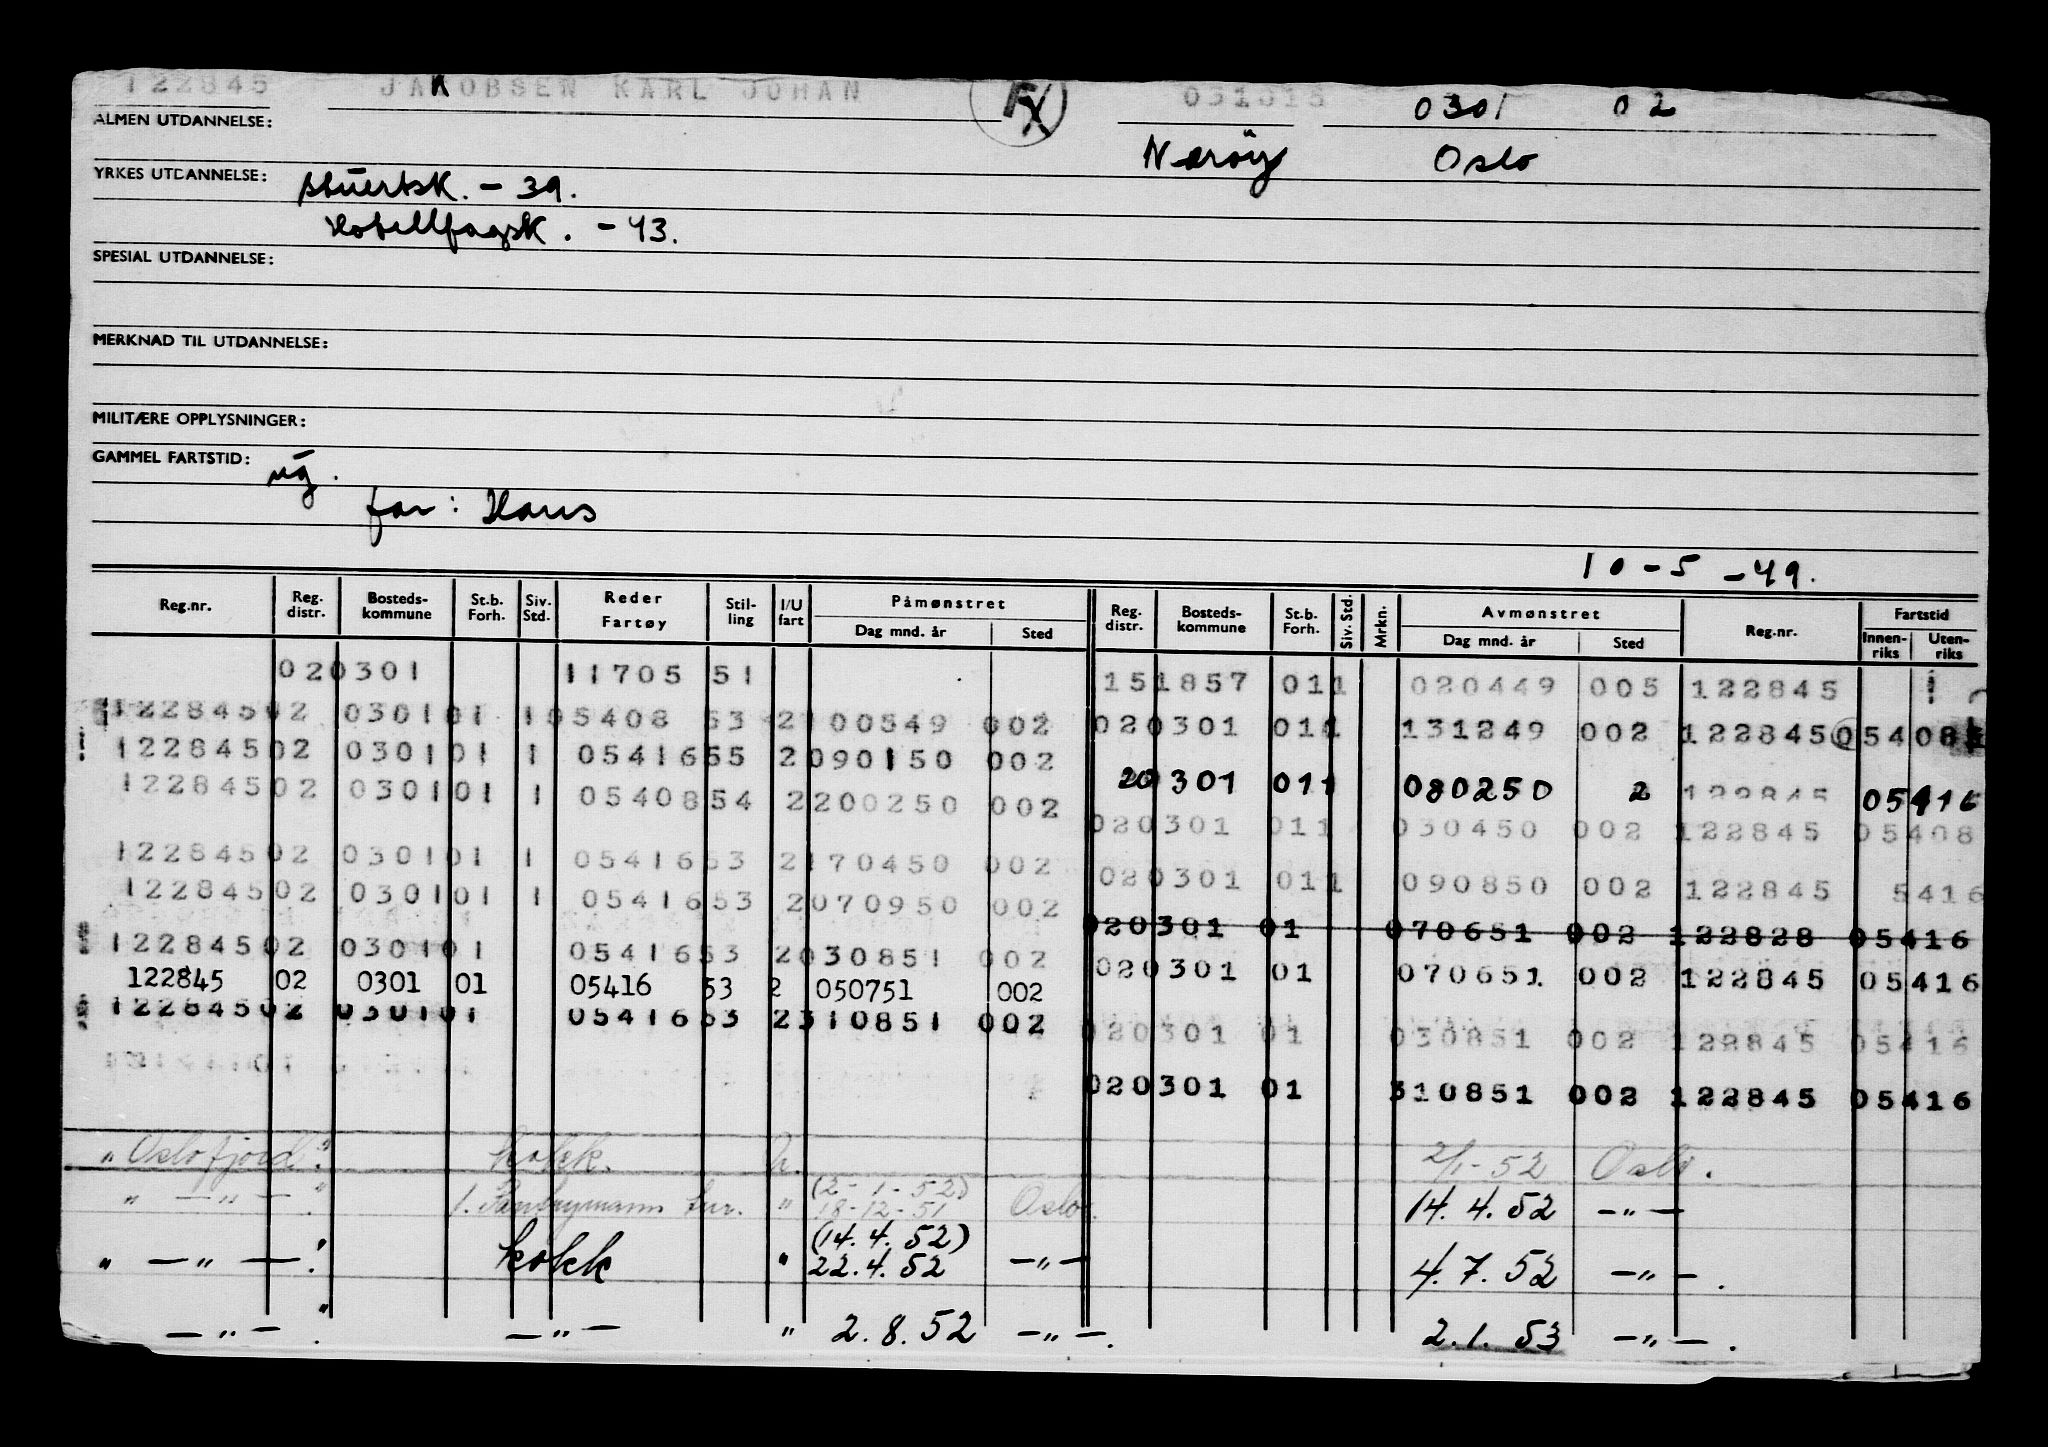 122845 JAKOBSEN KARL JOHAN FX 031015 0301 02
ALMEN UTDANNELSE:
Nærøy Oslo
YRKES UTDANNELSE: stuertsk. - 39.
Hotellfagsk. - 43.
SPESIAL UTDANNELSE:
MERKNAD TIL UTDANNELSE:
MILITÆRE OPPLYSNINGER:
GAMMEL FARTSTID: ug.
far: Hans
10-5-49.
Reg.nr. Reg. distr. Bosteds- kommune St.b. Forh. Siv. Std. Reder Fartøy Stil- ling I/U fart Påmønstret Dag mnd. år Sted Reg. distr. Bosteds- kommune St.b. Forh. Siv. Std. Mrkn. Avmønstret Dag mnd. år Sted Reg.nr. Fartstid Innen- riks Uten- riks
020301 11705 51 151857 011 020449 005 122845
12284502 030101 105408 53 2100549 002 020301 011 131249 002 122845 05408
12284502 030101 1 0541655 2090150 002 20301 011 080250 2 122845 05416
12284502 030101 1 0540854 2200250 002 020301 011 030450 002 122845 05408
12284502 030101 1 0541653 2170450 002 020301 011 090850 002 122845 5416
12284502 030101 1 0541653 2070950 002 020301 01 070651 002 122828 05416
12284502 030101 0541653 2030851 002 020301 01 070651 002 122845 05416
122845 02 0301 01 05416 53 2 050751 002
12284502 030101 0541653 2310851 002 020301 01 030851 002 122845 05416
020301 01 310851 002 122845 05416
"Oslofjord". kokk. u. 2/1-52 Oslo.
" — " — ". 1. Pantrymann tur. " (2-1-52) 18-12-51 Oslo. 14.4.52 — " —
" — " — ". kokk " (14.4.52) 22.4.52 — " — 4.7.52 — " — .
— " — ". — " — " 2.8.52 — " — . 2.1.53 — " — .